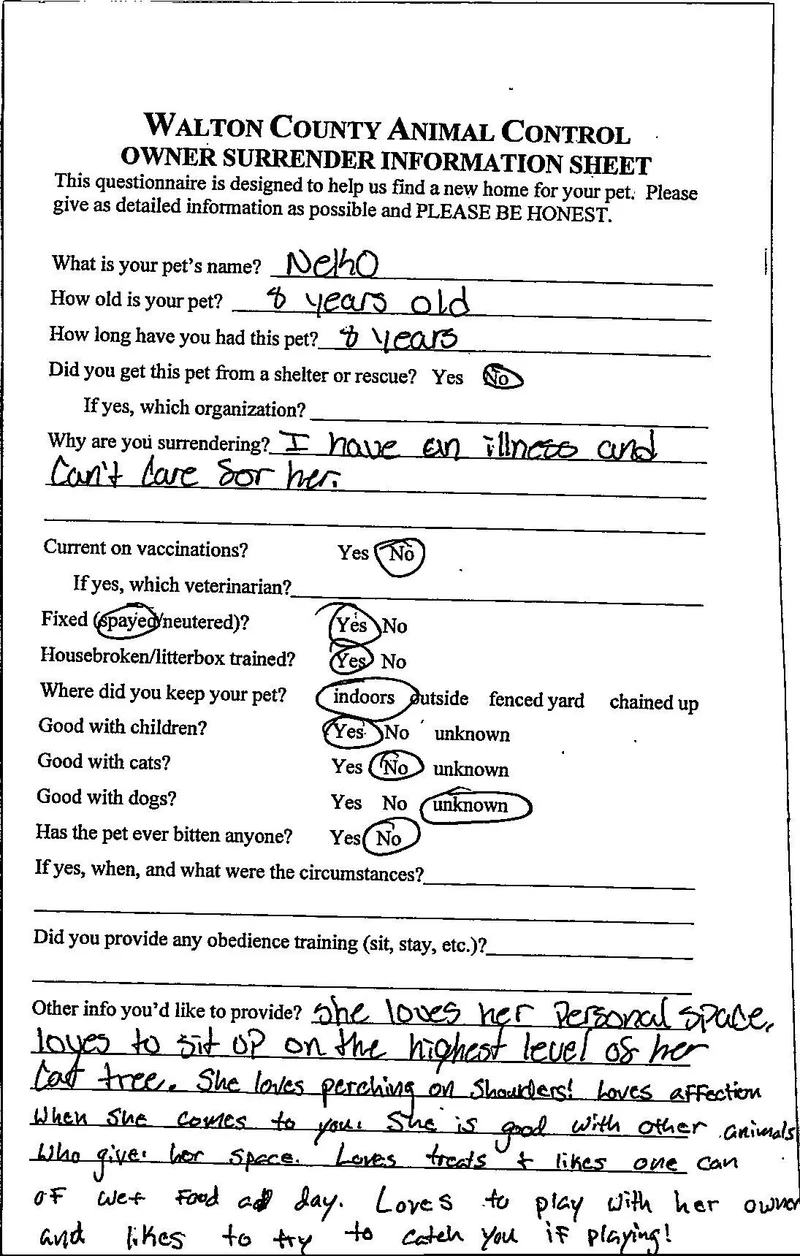 WALTON COUNTY ANIMAL CONTROL
OWNER SURRENDER INFORMATION SHEET
This questionnaire is designed to help us find a new home for your pet. Please
give as detailed information as possible and PLEASE BE HONEST.
What is your pet's name?
How old is your pet? 8 years old
How long have you had this pet? 8 years
Did you get this pet from a shelter or rescue? Yes No
If yes, which organization?
Why are you surrendering? I have an illness and
Can't Care for her.
Current on vaccinations? Yes No
If yes, which veterinarian?
Fixed (spayed/neutered)? Yes No
Housebroken/litterbox trained? Yes No
Where did you keep your pet? indoors outside fenced yard chained up
Good with children? Yes No unknown
Good with cats? Yes No unknown
Good with dogs? Yes No unknown
Has the pet ever bitten anyone? Yes No
If yes, when, and what were the circumstances?
Did you provide any obedience training (sit, stay, etc.)?
Other info you'd like to provide? She loves her personal space,
loves to sit up on the highest level of her
Cat tree. She loves perching on shoulders! Loves affection
when she comes to you. She is good with other animals
who give her space. Loves treats + likes one can
of wet food a day. Loves to play with her owner
and likes to try to catch you if playing!